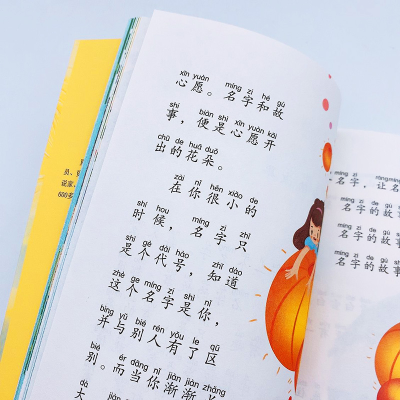 员、
说家、
600多
xīn yuàn míng zì hé gù
心愿。名字和故
shi biàn shì xīn yuàn kāi
事，便是心愿开
chū de huā duǒ
出的花朵。
zài nǐ hěn xiǎo de
在你很小的
shí hou míng zì zhǐ
时候，名字只
shì gè dài hào zhī dào
是个代号，知道
zhè ge míng zì shì nǐ
这个名字是你，
bìng yǔ bié rén yǒu le qū
并与别人有了区
bié ér dāng nǐ jiàn jiàn zhǎng
别。而当你渐渐长
dà
大
míng zì ràng míng
名字，让名
míng zì de gù shi
名字的故事
míng zì de gù
名字的故
míng zì de gù shi
名字的故事